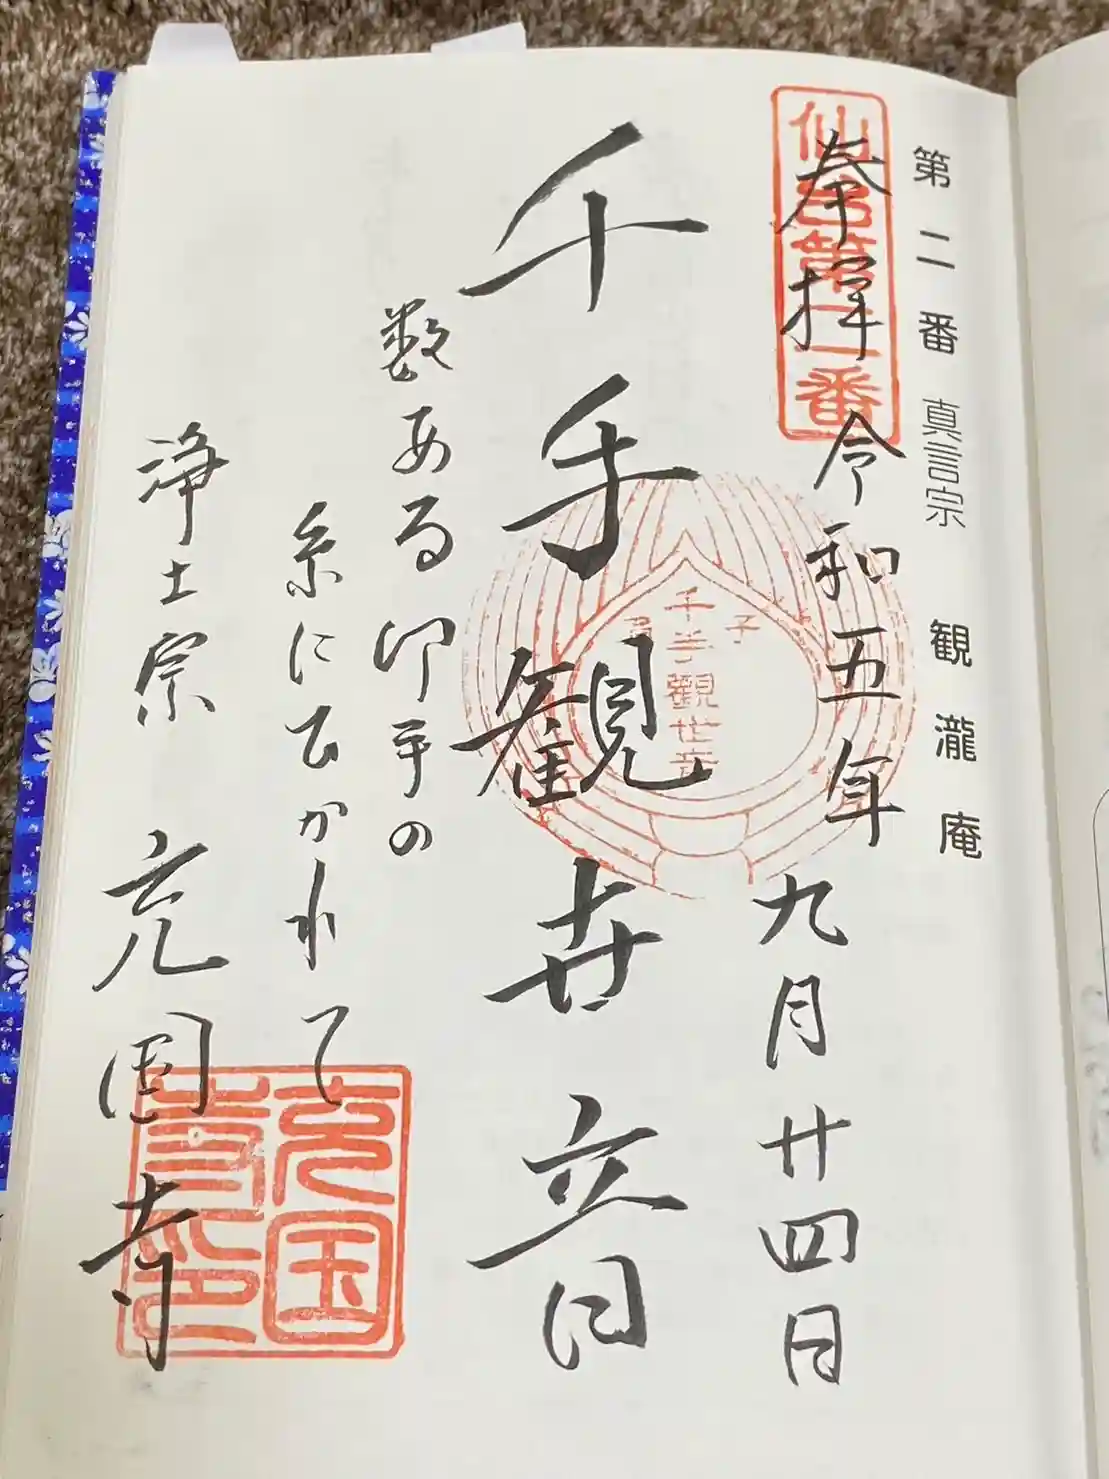 第二番 真言宗 観瀧庵
仙台第二番
奉拝 令和五年 九月廿四日
千手観世音
子 千手觀世音
数ある御手の
糸にひかれて
浄土宗 充国寺
充国寺印